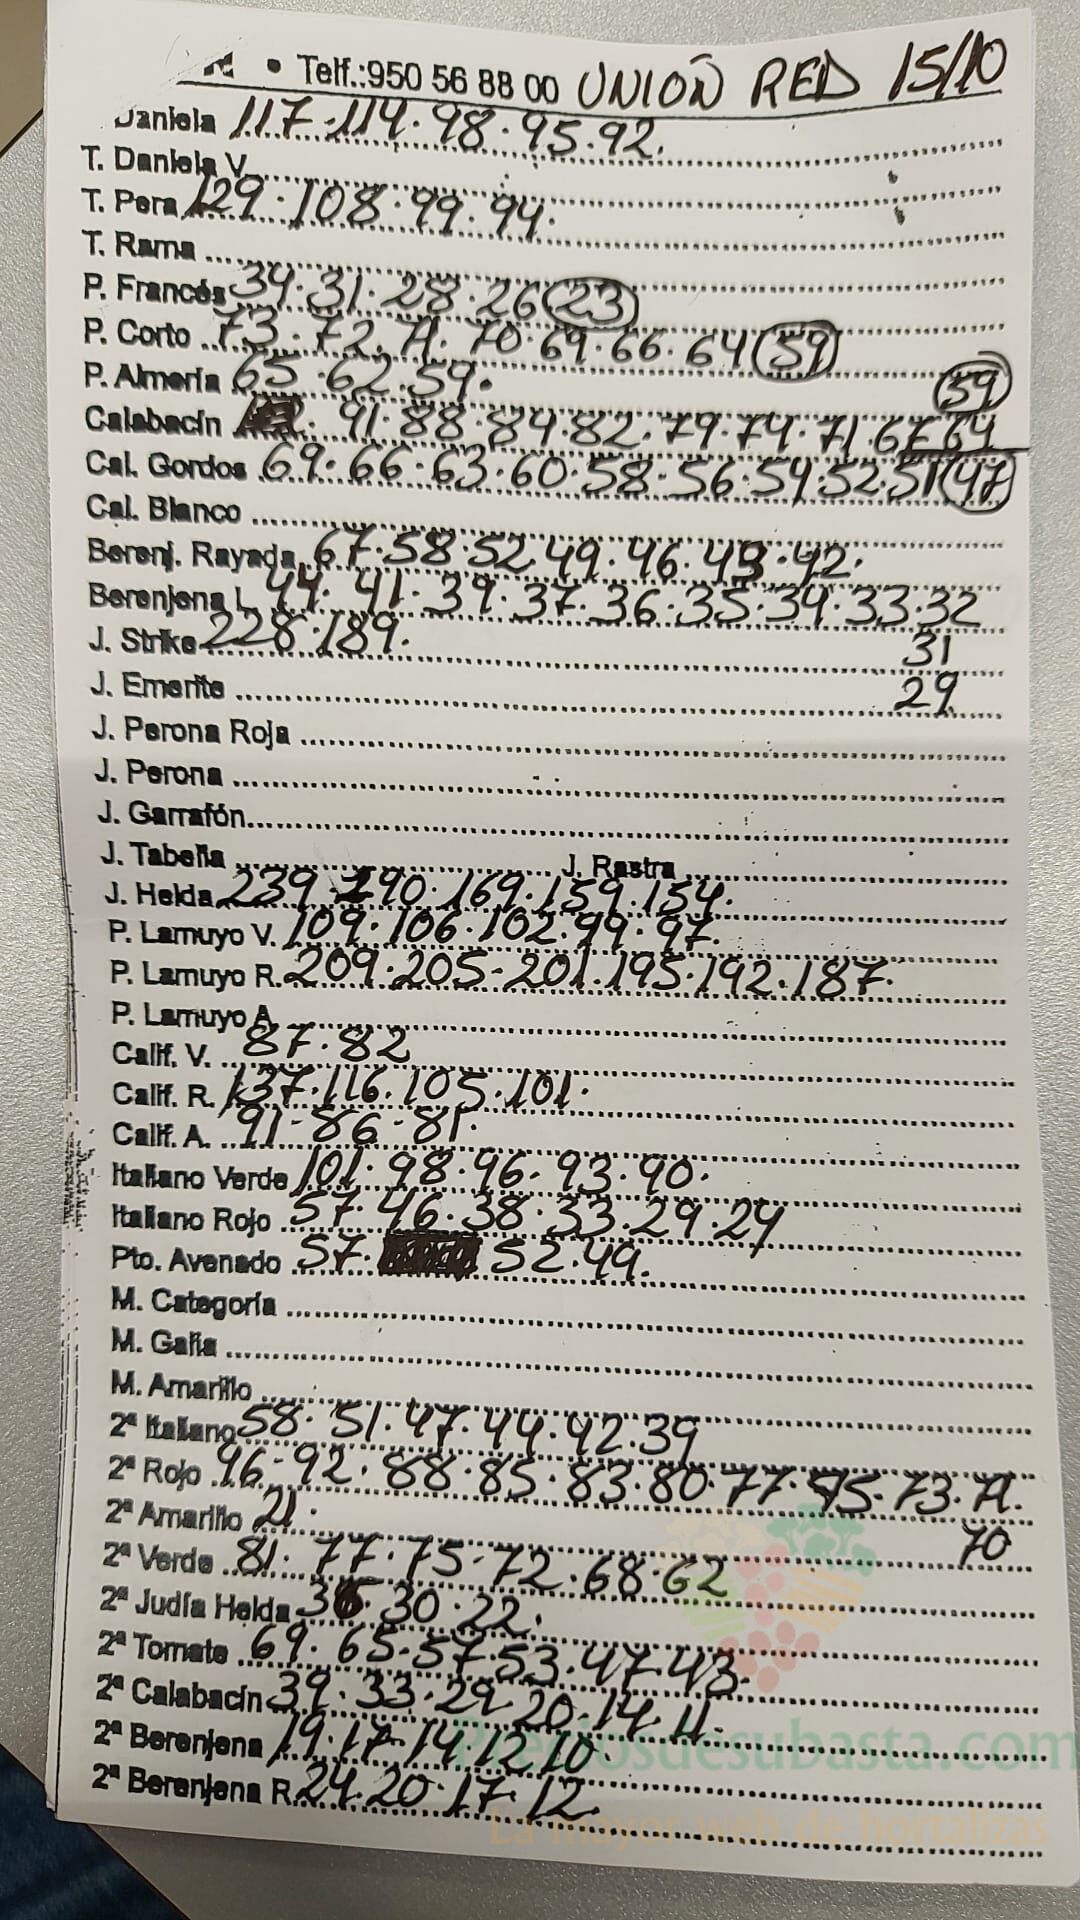 • Telf.:950 56 88 00 UNIÓN RED 15/10
Daniela 117.114.98.95.92.
T. Daniela V.
T. Pera 129.108.99.94.
T. Rama
P. Francés 34.31.28.26 23
P. Corto 73.72.71.70.69.66.64 59
P. Almería 65.62.59.
59
Calabacín 91.88.84.82.79.74.71.67 64
Cal. Gordos 69.66.63.60.58.56.54.52.51 47
Cal. Blanco
Berenj. Rayada 67.58.52.49.46.43.42.
Berenjena L. 44.41.39.37.36.35.34.33.32
31
29
J. Strike 228.189.
J. Emerite
J. Perona Roja
J. Perona
J. Garrafón
J. Tabella J. Rastra
J. Helda 239.190.169.159.154.
P. Lamuyo V. 109.106.102.99.97.
P. Lamuyo R. 209.205-201.195.192.187.
P. Lamuyo A.
Calif. V. 87.82
Calif. R. 137.116.105.101.
Calif. A. 91-86-81.
Italiano Verde 101.98.96.93.90.
Italiano Rojo 57.46.38.33.29.24
Pto. Avenado 57. 52.49.
M. Categoría
M. Galia
M. Amarillo
2ª Italiano 58.51.47.44.42.39
2ª Rojo 96-92.88.85.83.80.77.75.73.71.
70
2ª Amarillo 21.
2ª Verde 81.77.75-72.68.62
2ª Judía Helda 36.30.22.
2ª Tomate 69.65.57.53.47.43.
2ª Calabacín 39.33.29.20.14.11.
2ª Berenjena 19.17.14.12.10.
2ª Berenjena R. 24.20.17.12.
Preciosdesubasta.com
La mayor web de hortalizas